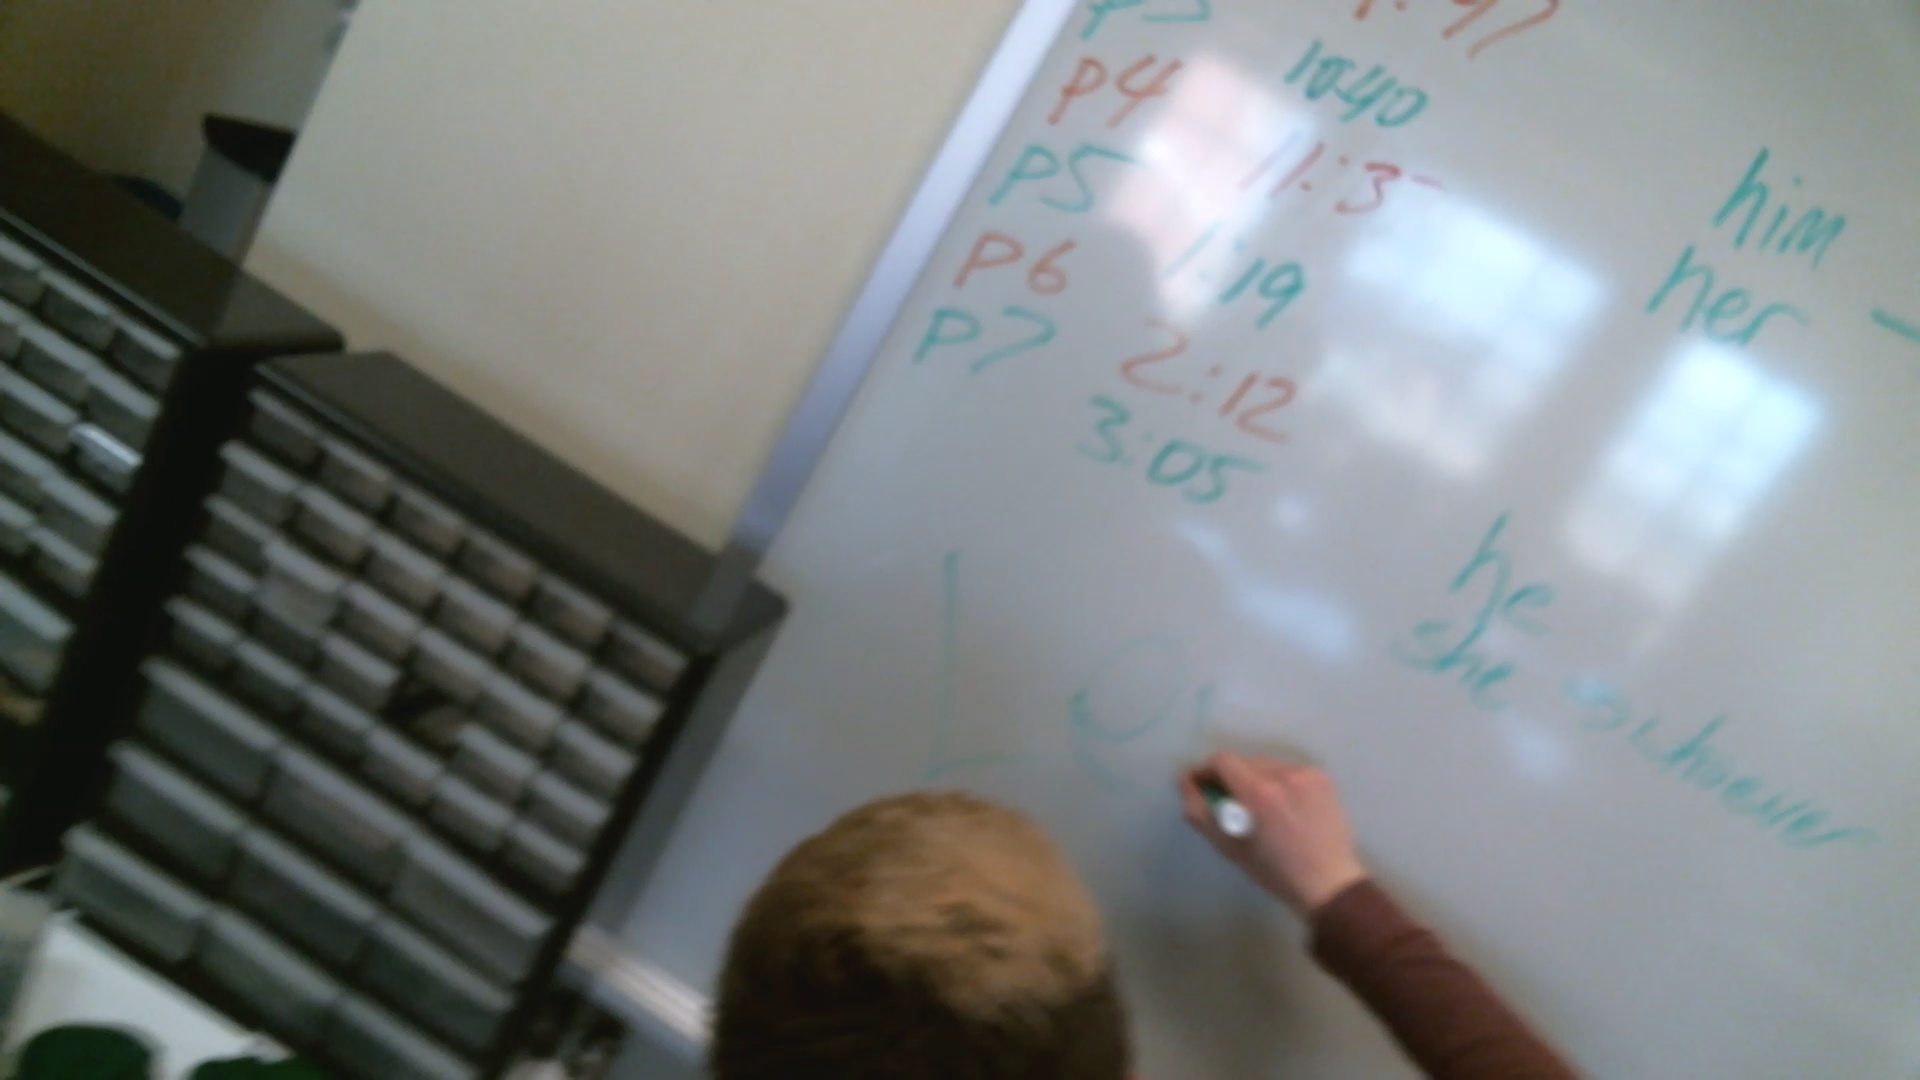 p3
p4 10:40
p5 11:3
p6 1:19
p7 2:12
3:05
him
her
he
she
Le